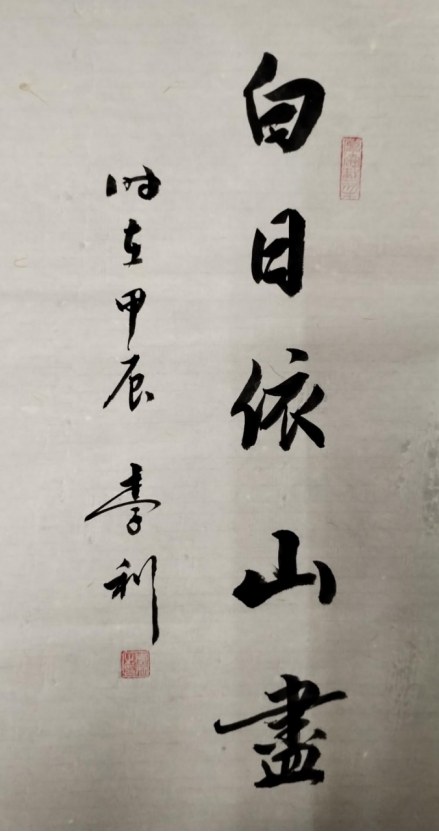 白日依山盡
時在甲辰 李利